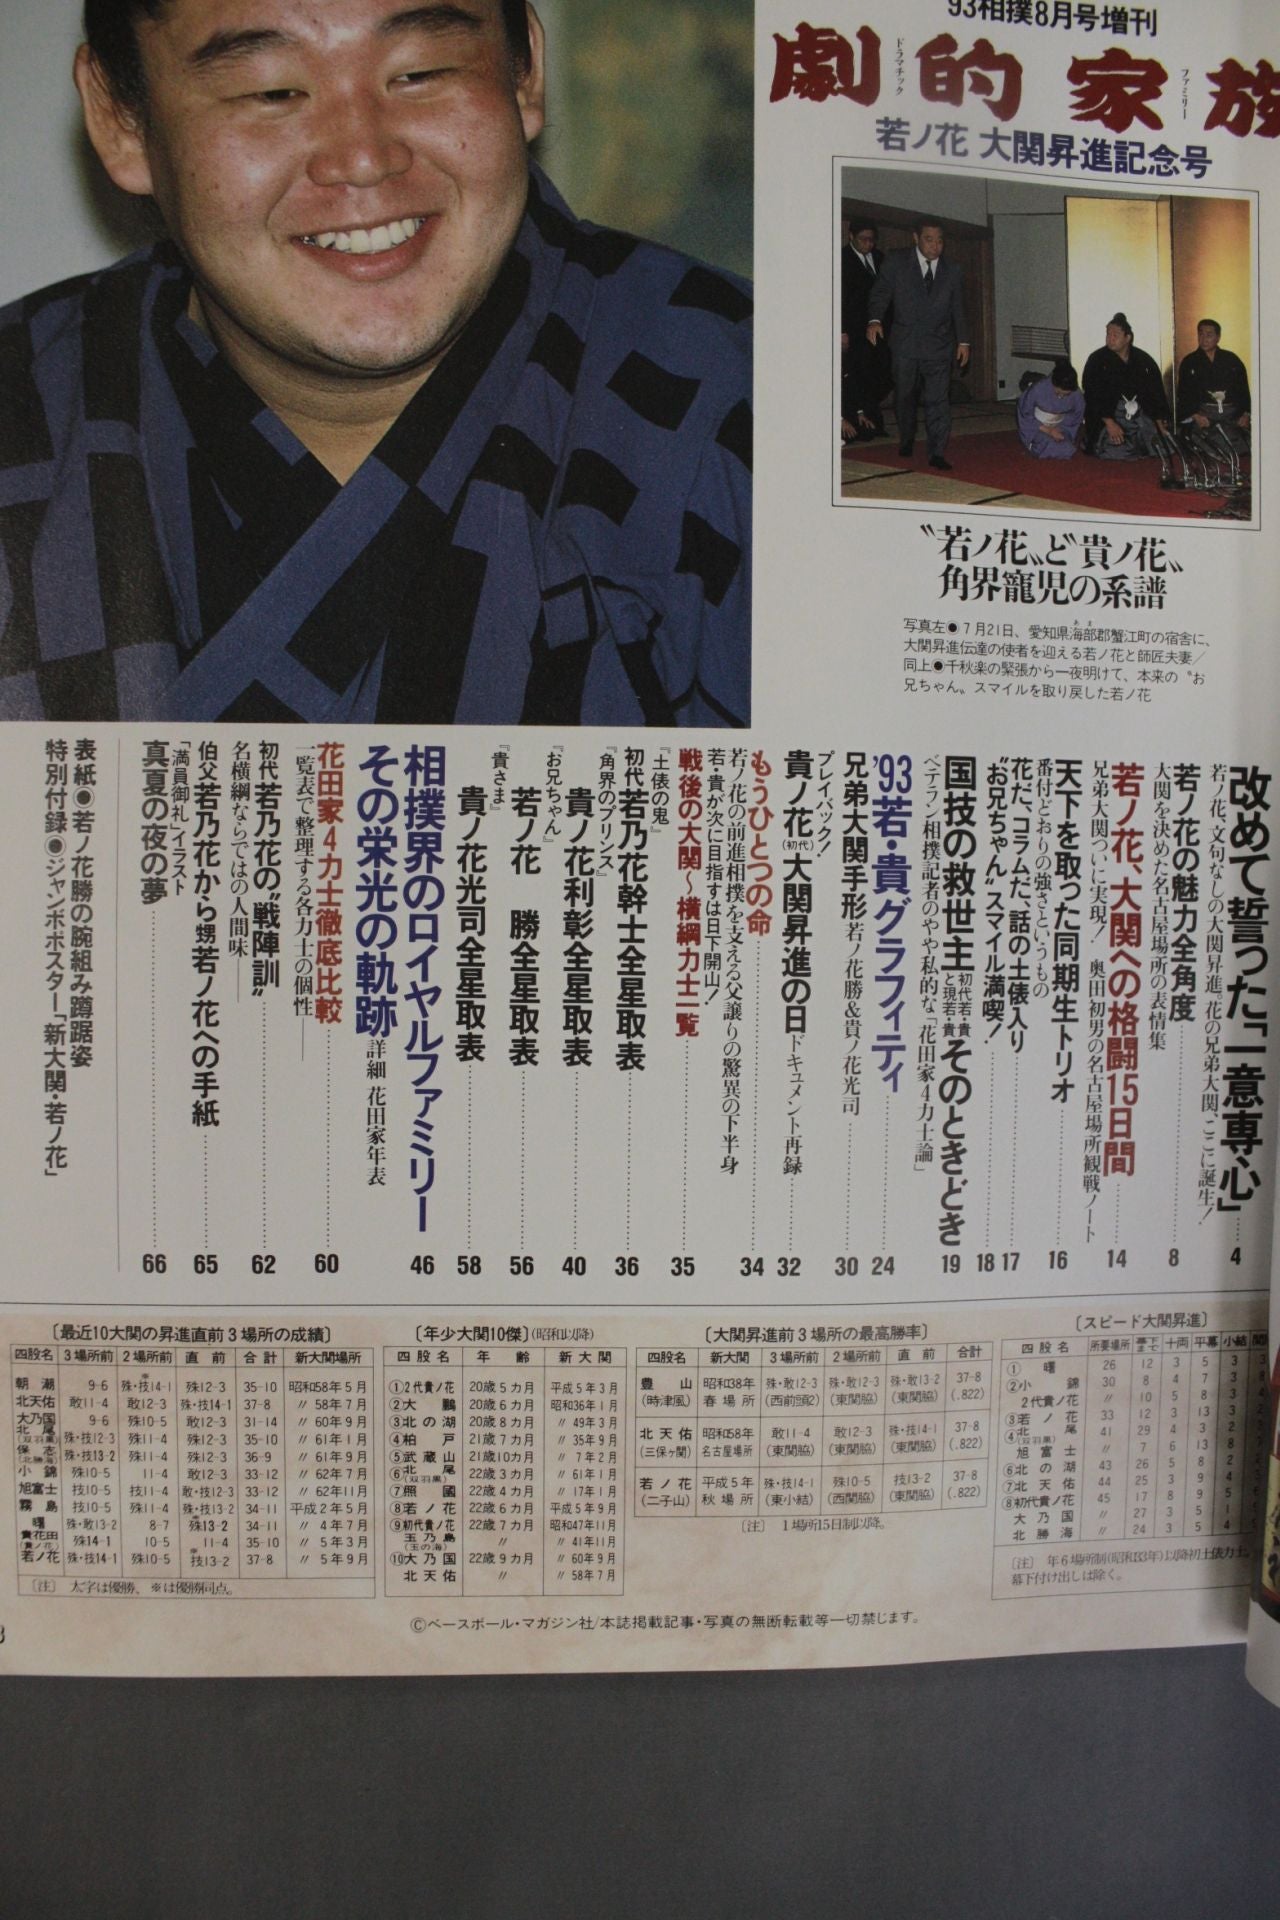 93相撲8月号増刊
劇的家族
ドラマチック
ファミリー
若ノ花 大関昇進記念号
〝若ノ花〟と〝貴ノ花〟
角界寵児の系譜
写真左●7月21日、愛知県海部郡蟹江町の宿舎に、
大関昇進伝達の使者を迎える若ノ花と師匠夫妻/
同上●千秋楽の緊張から一夜明けて、本来の〝お
兄ちゃん〟スマイルを取り戻した若ノ花
改めて誓った「一意専心」 4
若ノ花、文句なしの大関昇進。花の兄弟大関、ここに誕生!
若ノ花の魅力全角度 8
大関を決めた名古屋場所の表情集
若ノ花、大関への格闘15日間 14
兄弟大関ついに実現! 奥田初男の名古屋場所観戦ノート
天下を取った同期生トリオ 16
番付どおりの強さというもの
花だ、コラムだ、話の土俵入り 17
〝お兄ちゃん〟スマイル満喫! 18
国技の救世主 初代若・貴と現若・貴 そのときどき 19
ベテラン相撲記者のやや私的な「花田家4力士論」
'93若・貴グラフィティ 24
兄弟大関手形 若ノ花勝&貴ノ花光司 30
プレイバック!
貴ノ花(初代)大関昇進の日 ドキュメント再録 32
もうひとつの命 34
若ノ花の前進相撲を支える父譲りの驚異の下半身
若・貴が次に目指すは日下開山!
戦後の大関〜横綱力士一覧 35
『土俵の鬼』
初代若乃花幹士全星取表 36
『角界のプリンス』
貴ノ花利彰全星取表 40
『お兄ちゃん』
若ノ花 勝全星取表 56
『貴さま』
貴ノ花光司全星取表 58
相撲界のロイヤルファミリー
その栄光の軌跡 詳細 花田家年表 46
花田家4力士徹底比較 60
一覧表で整理する各力士の個性——
初代若乃花の〝戦陣訓〟 62
名横綱ならではの人間味——
伯父若乃花から甥若ノ花への手紙 65
「満員御礼」イラスト
真夏の夜の夢 66
表紙●若ノ花勝の腕組み蹲踞姿
特別付録●ジャンボポスター「新大関・若ノ花」
〔最近10大関の昇進直前3場所の成績〕
四股名 3場所前 2場所前 直前 合計 新大関場所
朝潮 9-6 殊・技14-1 殊12-3 35-10 昭和58年5月
北天佑 敢11-4 敢12-3 殊・技14-1 37-8 〃58年7月
大乃国 9-6 殊10-5 敢12-3 31-14 〃60年9月
北尾(双羽黒) 殊・技12-3 殊11-4 殊12-3 35-10 〃61年1月
保志(北勝海) 殊・技13-2 殊11-4 殊12-3 36-9 〃61年9月
小錦 殊10-5 11-4 敢12-3 33-12 〃62年7月
旭富士 技10-5 技11-4 敢・技12-3 33-12 〃62年11月
霧島 技10-5 殊11-4 殊・技13-2 34-11 平成2年5月
曙 殊・敢13-2 8-7 殊13-2 34-11 〃4年7月
貴花田(貴ノ花) 殊14-1 10-5 11-4 35-10 〃5年3月
若ノ花 殊・技14-1 殊10-5 技13-2 37-8 〃5年9月
〔注〕 太字は優勝、※は優勝同点。
〔年少大関10傑〕(昭和以降)
四股名 年齢 新大関
①2代貴ノ花 20歳5カ月 平成5年3月
②大鵬 20歳6カ月 昭和36年1月
③北の湖 20歳8カ月 〃49年3月
④柏戸 21歳7カ月 〃35年9月
⑤武蔵山 21歳10カ月 〃7年2月
⑥北尾(双羽黒) 22歳3カ月 〃61年1月
⑦照國 22歳4カ月 〃17年1月
⑧若ノ花 22歳6カ月 平成5年9月
⑨初代貴ノ花 22歳7カ月 昭和47年11月
玉乃島(玉の海) 〃 〃41年11月
⑩大乃国 22歳9カ月 〃60年9月
北天佑 〃 〃58年7月
〔大関昇進前3場所の最高勝率〕
四股名 新大関 3場所前 2場所前 直前 合計
豊山(時津風) 昭和38年春場所 殊・敢12-3(西前頭2) 殊・敢12-3(東関脇) 殊・敢13-2(東関脇) 37-8(.822)
北天佑(三保ケ関) 昭和58年名古屋場所 敢11-4(東関脇) 敢12-3(東関脇) 殊・技14-1(東関脇) 37-8(.822)
若ノ花(二子山) 平成5年秋場所 殊・技14-1(東小結) 殊10-5(西関脇) 技13-2(東関脇) 37-8(.822)
〔注〕 1場所15日制以降。
〔スピード大関昇進〕
四股名 所要場所 幕下まで 十両 平幕 小結 関
①曙 26 12 3 5 3
②小錦 30 8 4 7 3
2代貴ノ花 〃 10 5 8 3
③若ノ花 33 12 3 13 3
④北尾(双羽黒) 41 29 4 3 2
旭富士 〃 7 6 13 8
⑥北の湖 43 26 5 8 2
⑦北天佑 44 25 3 9 4
⑧初代貴ノ花 45 17 8 9 5
大乃国 〃 27 3 5 1
北勝海 〃 24 3 5 4
〔注〕 年6場所制(昭和33年)以降初土俵力士。
幕下付け出しは除く。
©ベースボール・マガジン社/本誌掲載記事・写真の無断転載等一切禁じます。
3